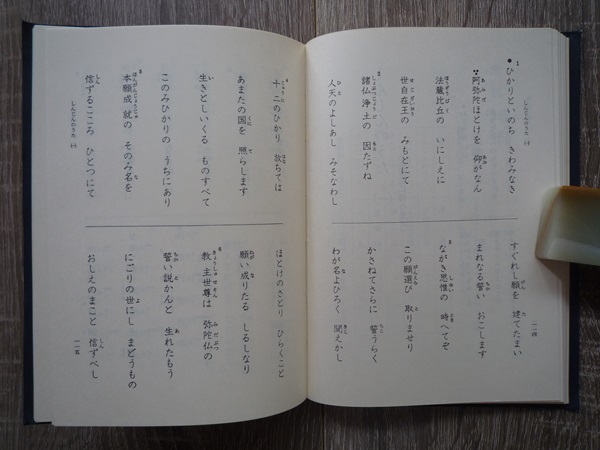 しんじんのうた ㈠
一一四
●ひかりといのち きわみなき
阿弥陀ほとけを 仰がなん
法蔵比丘の いにしえに
世自在王の みもとにて
諸仏浄土の 因たずね
人天のよしあし みそなわし
すぐれし願を 建てたまい
まれなる誓い おこします
ながき思惟の 時へてぞ
この願選び 取りませり
かさねてさらに 誓うらく
わが名よひろく 聞えかし
十二のひかり 放ちては
あまたの国を 照らします
生きとしいくる ものすべて
このみひかりの うちにあり
本願成就の そのみ名を
信ずるこころ ひとつにて
ほとけのさとり ひらくこと
願い成りたる しるしなり
教主世尊は 弥陀仏の
誓い説かんと 生れたもう
にごりの世にし まどうもの
おしえのまこと 信ずべし
しんじんのうた ㈠
一一五